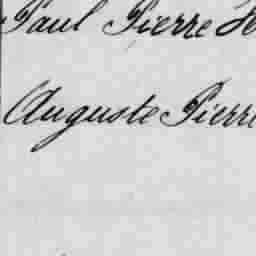 Paul Pierre
Auguste Pierre